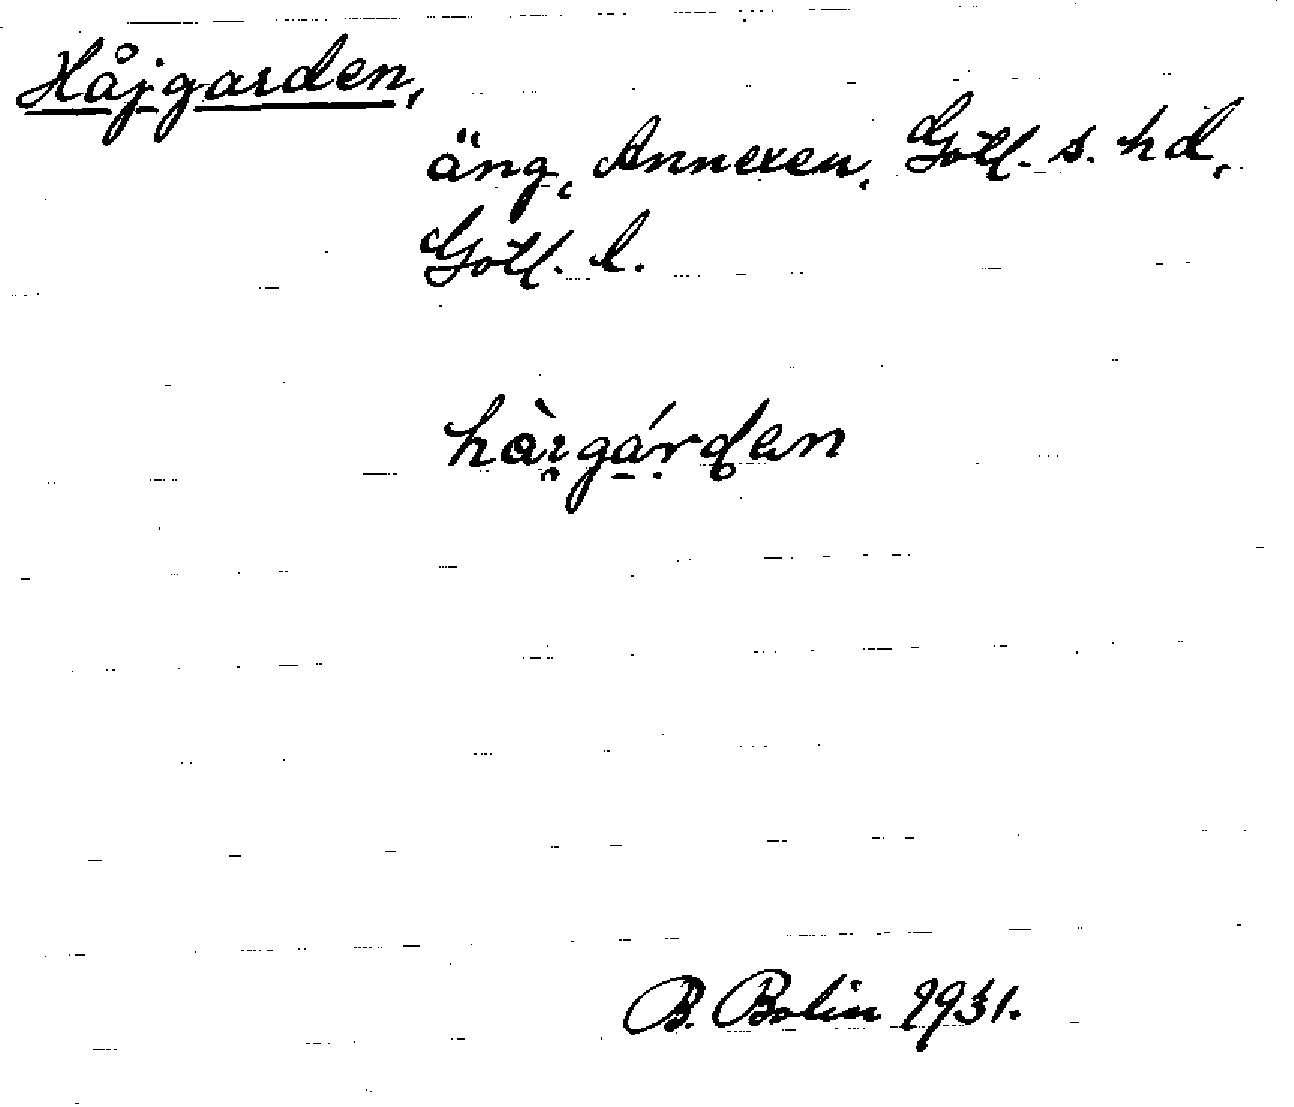 Håjgarden,
äng, Annexen, Gotl. s. hd,
Gotl. l.
hàɪ̯gá̱rɖan
B. Bolin 1931.